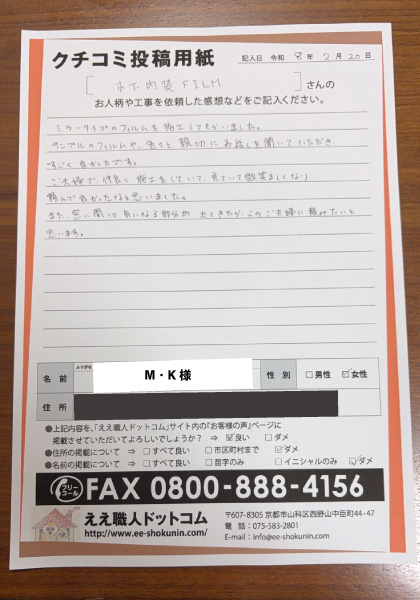 クチコミ投稿用紙
記入日 令和 8年 2月 20日
[ ホホ内装FILM ] さんの
お人柄や工事を依頼した感想などをご記入ください。
ミラータイプのフィルムを施工してもらいました。
サンプルのフィルムや、色々と親切にお話しを聞いていただき、
すごく良かったです。
ご夫婦で、仲良く施工をしていて、見ていて微笑ましくなり、
頼んで良かったなと思いました。
また、窓に関して気になる部分が出てきたら、このご夫婦に頼みたいと
思います。
ふりがな
名前 M・K 様 性別 □男性 ☑女性
住所
●上記内容を、「ええ職人ドットコム」サイト内の「お客様の声」ページに
掲載させていただいてよろしいでしょうか？ ⇒ ☑良い □ダメ
●住所の掲載について ⇒ □すべて良い □市区町村まで ☑ダメ
●名前の掲載について ⇒ □すべて良い □苗字のみ □イニシャルのみ ☑ダメ
フリーコール FAX 0800-888-4156
ええ職人ドットコム
http://www.ee-shokunin.com/
〒607-8305 京都市山科区西野山中臣町44-47
電話：075-583-2801
E-mail：info@ee-shokunin.com